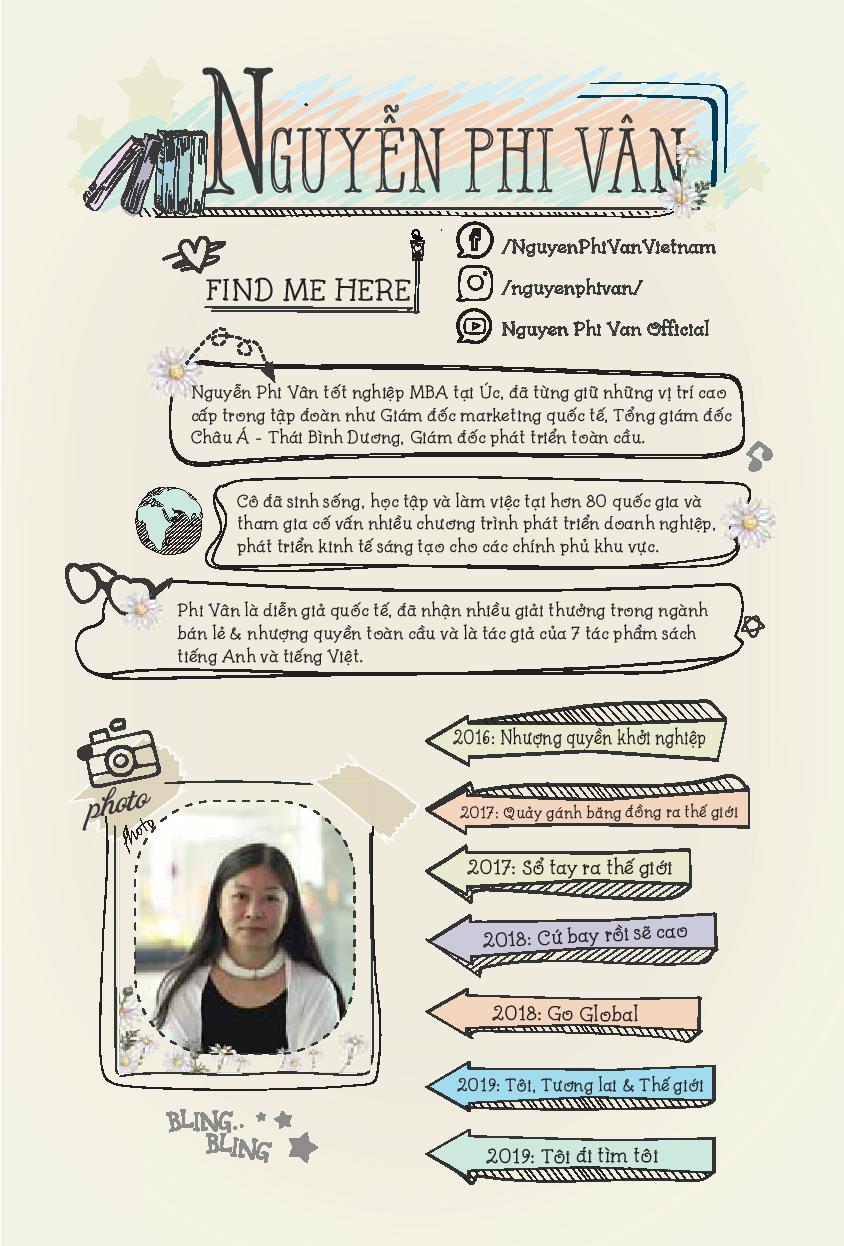 NGUYỄN PHI VÂN
FIND ME HERE
/NguyenPhiVanVietnam
/nguyenphivan/
Nguyen Phi Van Official
Nguyễn Phi Vân tốt nghiệp MBA tại Úc, đã từng giữ những vị trí cao
cấp trong tập đoàn như Giám đốc marketing quốc tế, Tổng giám đốc
Châu Á - Thái Bình Dương, Giám đốc phát triển toàn cầu.
Cô đã sinh sống, học tập và làm việc tại hơn 80 quốc gia và
tham gia cố vấn nhiều chương trình phát triển doanh nghiệp,
phát triển kinh tế sáng tạo cho các chính phủ khu vực.
Phi Vân là diễn giả quốc tế, đã nhận nhiều giải thưởng trong ngành
bán lẻ & nhượng quyền toàn cầu và là tác giả của 7 tác phẩm sách
tiếng Anh và tiếng Việt.
photo
photo
BLING..
BLING
2016: Nhượng quyền khởi nghiệp
2017: Quảy gánh băng đồng ra thế giới
2017: Sổ tay ra thế giới
2018: Cứ bay rồi sẽ cao
2018: Go Global
2019: Tôi, Tương lai & Thế giới
2019: Tôi đi tìm tôi